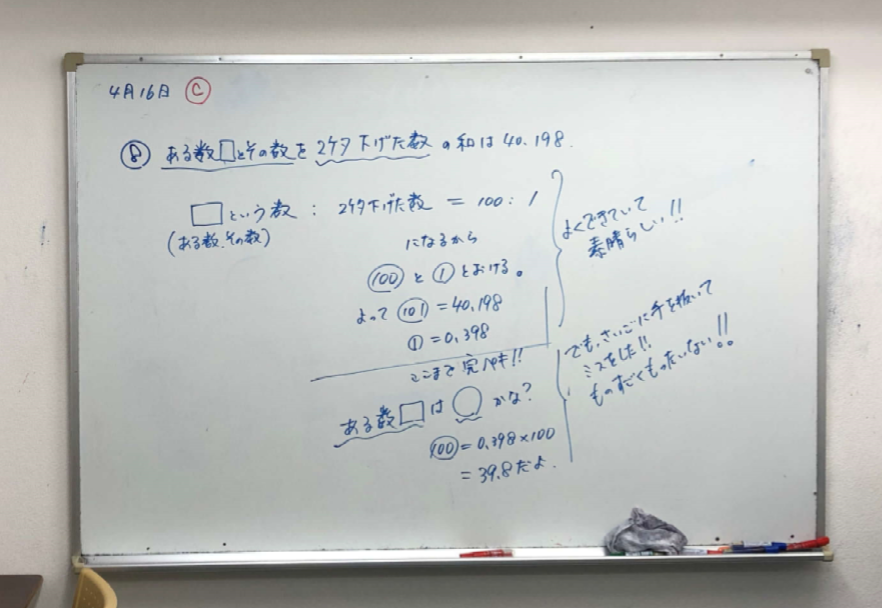 4月16日 Ⓒ
⑧ ある数□とその数を2ケタ下げた数の和は40.198.
□という数 : 2ケタ下げた数 = 100 : 1
(ある数.その数)
になるから
⑩⓪ と ① とおける。
よって (101) = 40.198
① = 0.398
ここまで完ペキ!!
ある数□は○かな?
(100) = 0.398×100
= 39.8だよ.
よくできていて
素晴らしい!!
でも、さいごに手を抜いて
ミスをした!!
ものすごくもったいない!!